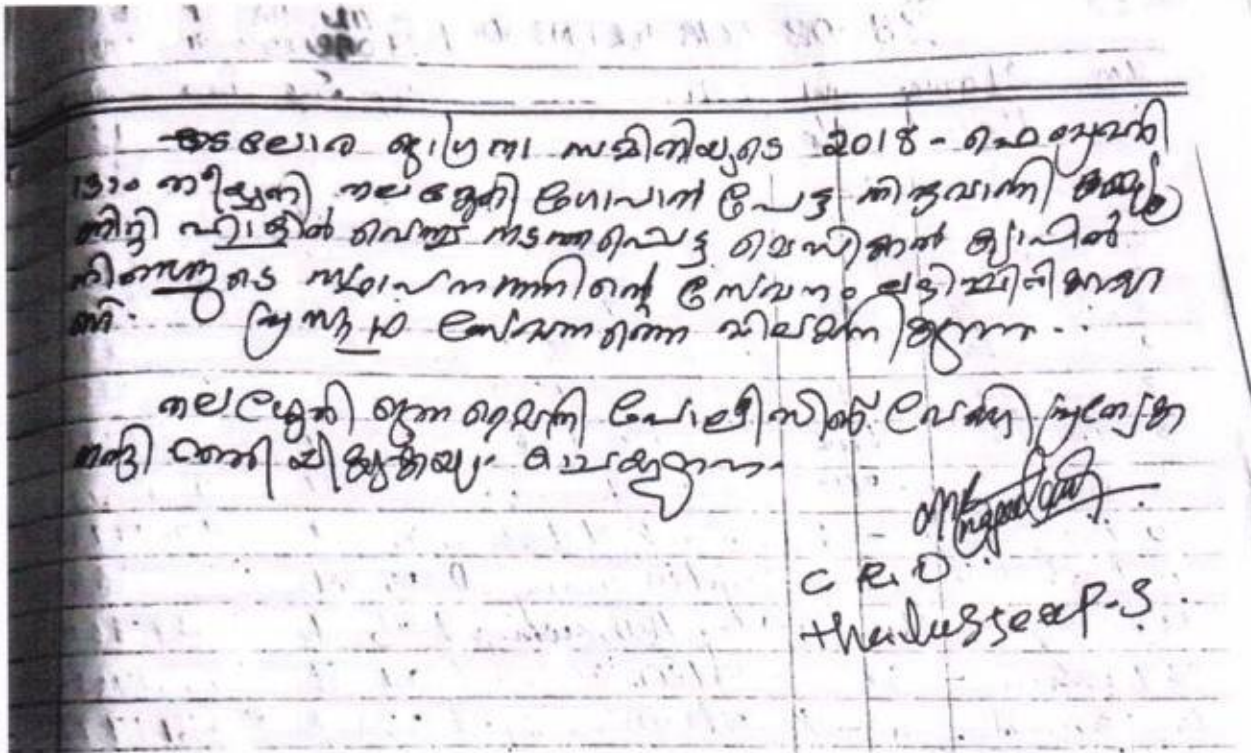 കടലോര ജാഗ്രതാ സമിതിയുടെ 2018 - ഫെബ്രുവരി
13ാം തീയ്യതി തലശ്ശേരി ഗോപാല പേട്ട തിരുവാണി കമ്മ്യൂ
ണിറ്റി ഹാളിൽ വെച്ച് നടത്തപ്പെട്ട മെഡിക്കൽ ക്യാമ്പിൽ
നിങ്ങളുടെ സ്ഥാപനത്തിന്റെ സേവനം ലഭിച്ചിരിക്കുന്നു
പ്രസ്തുത സേവനത്തെ വിലമതിക്കുന്നു..
തലശ്ശേരി ജനമൈത്രി പോലീസിന് വേണ്ടി പ്രത്യേക
നന്ദി
C R O
Thalassery P.S.